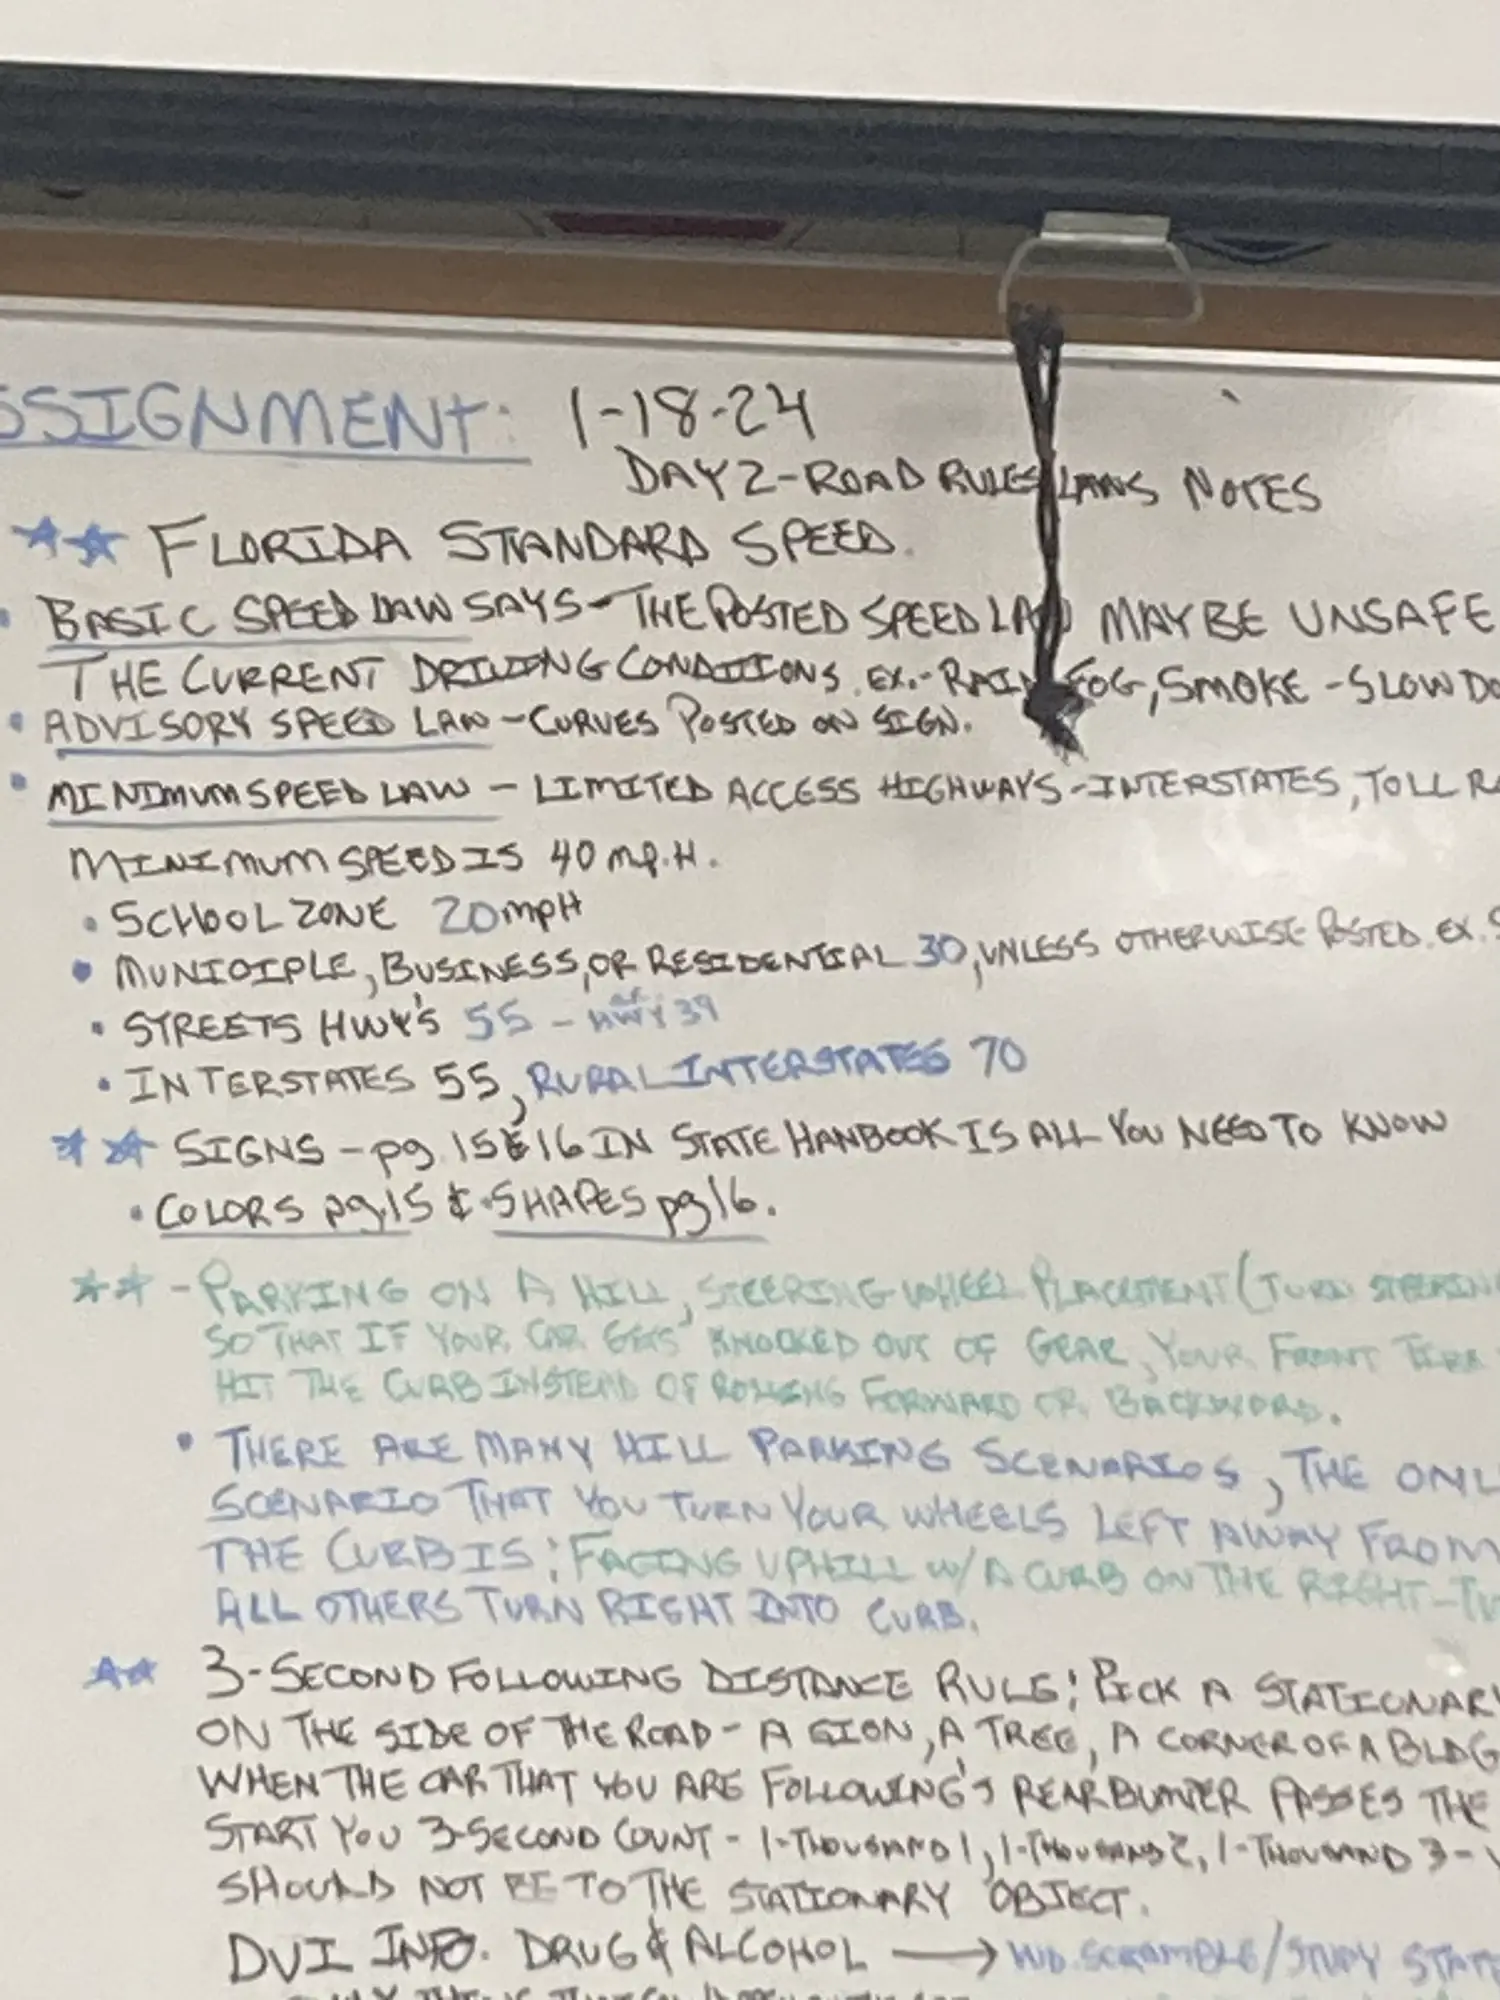 SSIGNMENT: 1-18-24
DAY 2-ROAD RULES LAWS NOTES
FLORIDA STANDARD SPEED.
• BASIC SPEED LAW SAYS-THE POSTED SPEED LAW MAY BE UNSAFE
THE CURRENT DRIVING CONDITIONS. EX.-RAIN, FOG, SMOKE-SLOW DO
• ADVISORY SPEED LAW-CURVES POSTED ON SIGN.
• MINIMUM SPEED LAW - LIMITED ACCESS HIGHWAYS-INTERSTATES, TOLL R
MINIMUM SPEED IS 40 M.P.H.
• SCHOOL ZONE 20MPH
• MUNICIPLE, BUSINESS, OR RESIDENTIAL 30, UNLESS OTHERWISE POSTED. EX.
• STREETS HWY'S 55 - HWY 39
• INTERSTATES 55, RURAL INTERSTATES 70
SIGNS - pg. 15 & 16 IN STATE HANBOOK IS ALL YOU NEED TO KNOW
• COLORS pg.15 & • SHAPES pg16.
- PARKING ON A HILL, STEERING WHEEL PLACEMENT (TURN STEERIN
SO THAT IF YOUR CAR GETS KNOCKED OUT OF GEAR, YOUR FRONT TIRE
HIT THE CURB INSTEAD OF ROLLING FORWARD OR BACKWORD.
• THERE ARE MANY HILL PARKING SCENARIOS, THE ONL
SCENARIO THAT YOU TURN YOUR WHEELS LEFT AWAY FROM
THE CURB IS: FACING UPHILL W/ A CURB ON THE RIGHT-TU
ALL OTHERS TURN RIGHT INTO CURB.
3-SECOND FOLLOWING DISTANCE RULE: PICK A STATIONARY
ON THE SIDE OF THE ROAD - A SIGN, A TREE, A CORNER OF A BLDG
WHEN THE CAR THAT YOU ARE FOLLOWING'S REAR BUMPER PASSES THE
START YOU 3-SECOND COUNT - 1-THOUSAND 1, 1-THOUSAND 2, 1-THOUSAND 3 -
SHOULD NOT BE TO THE STATIONARY OBJECT.
DUI INFO. DRUG & ALCOHOL → WD. SCRAMBLE/STUDY STATE